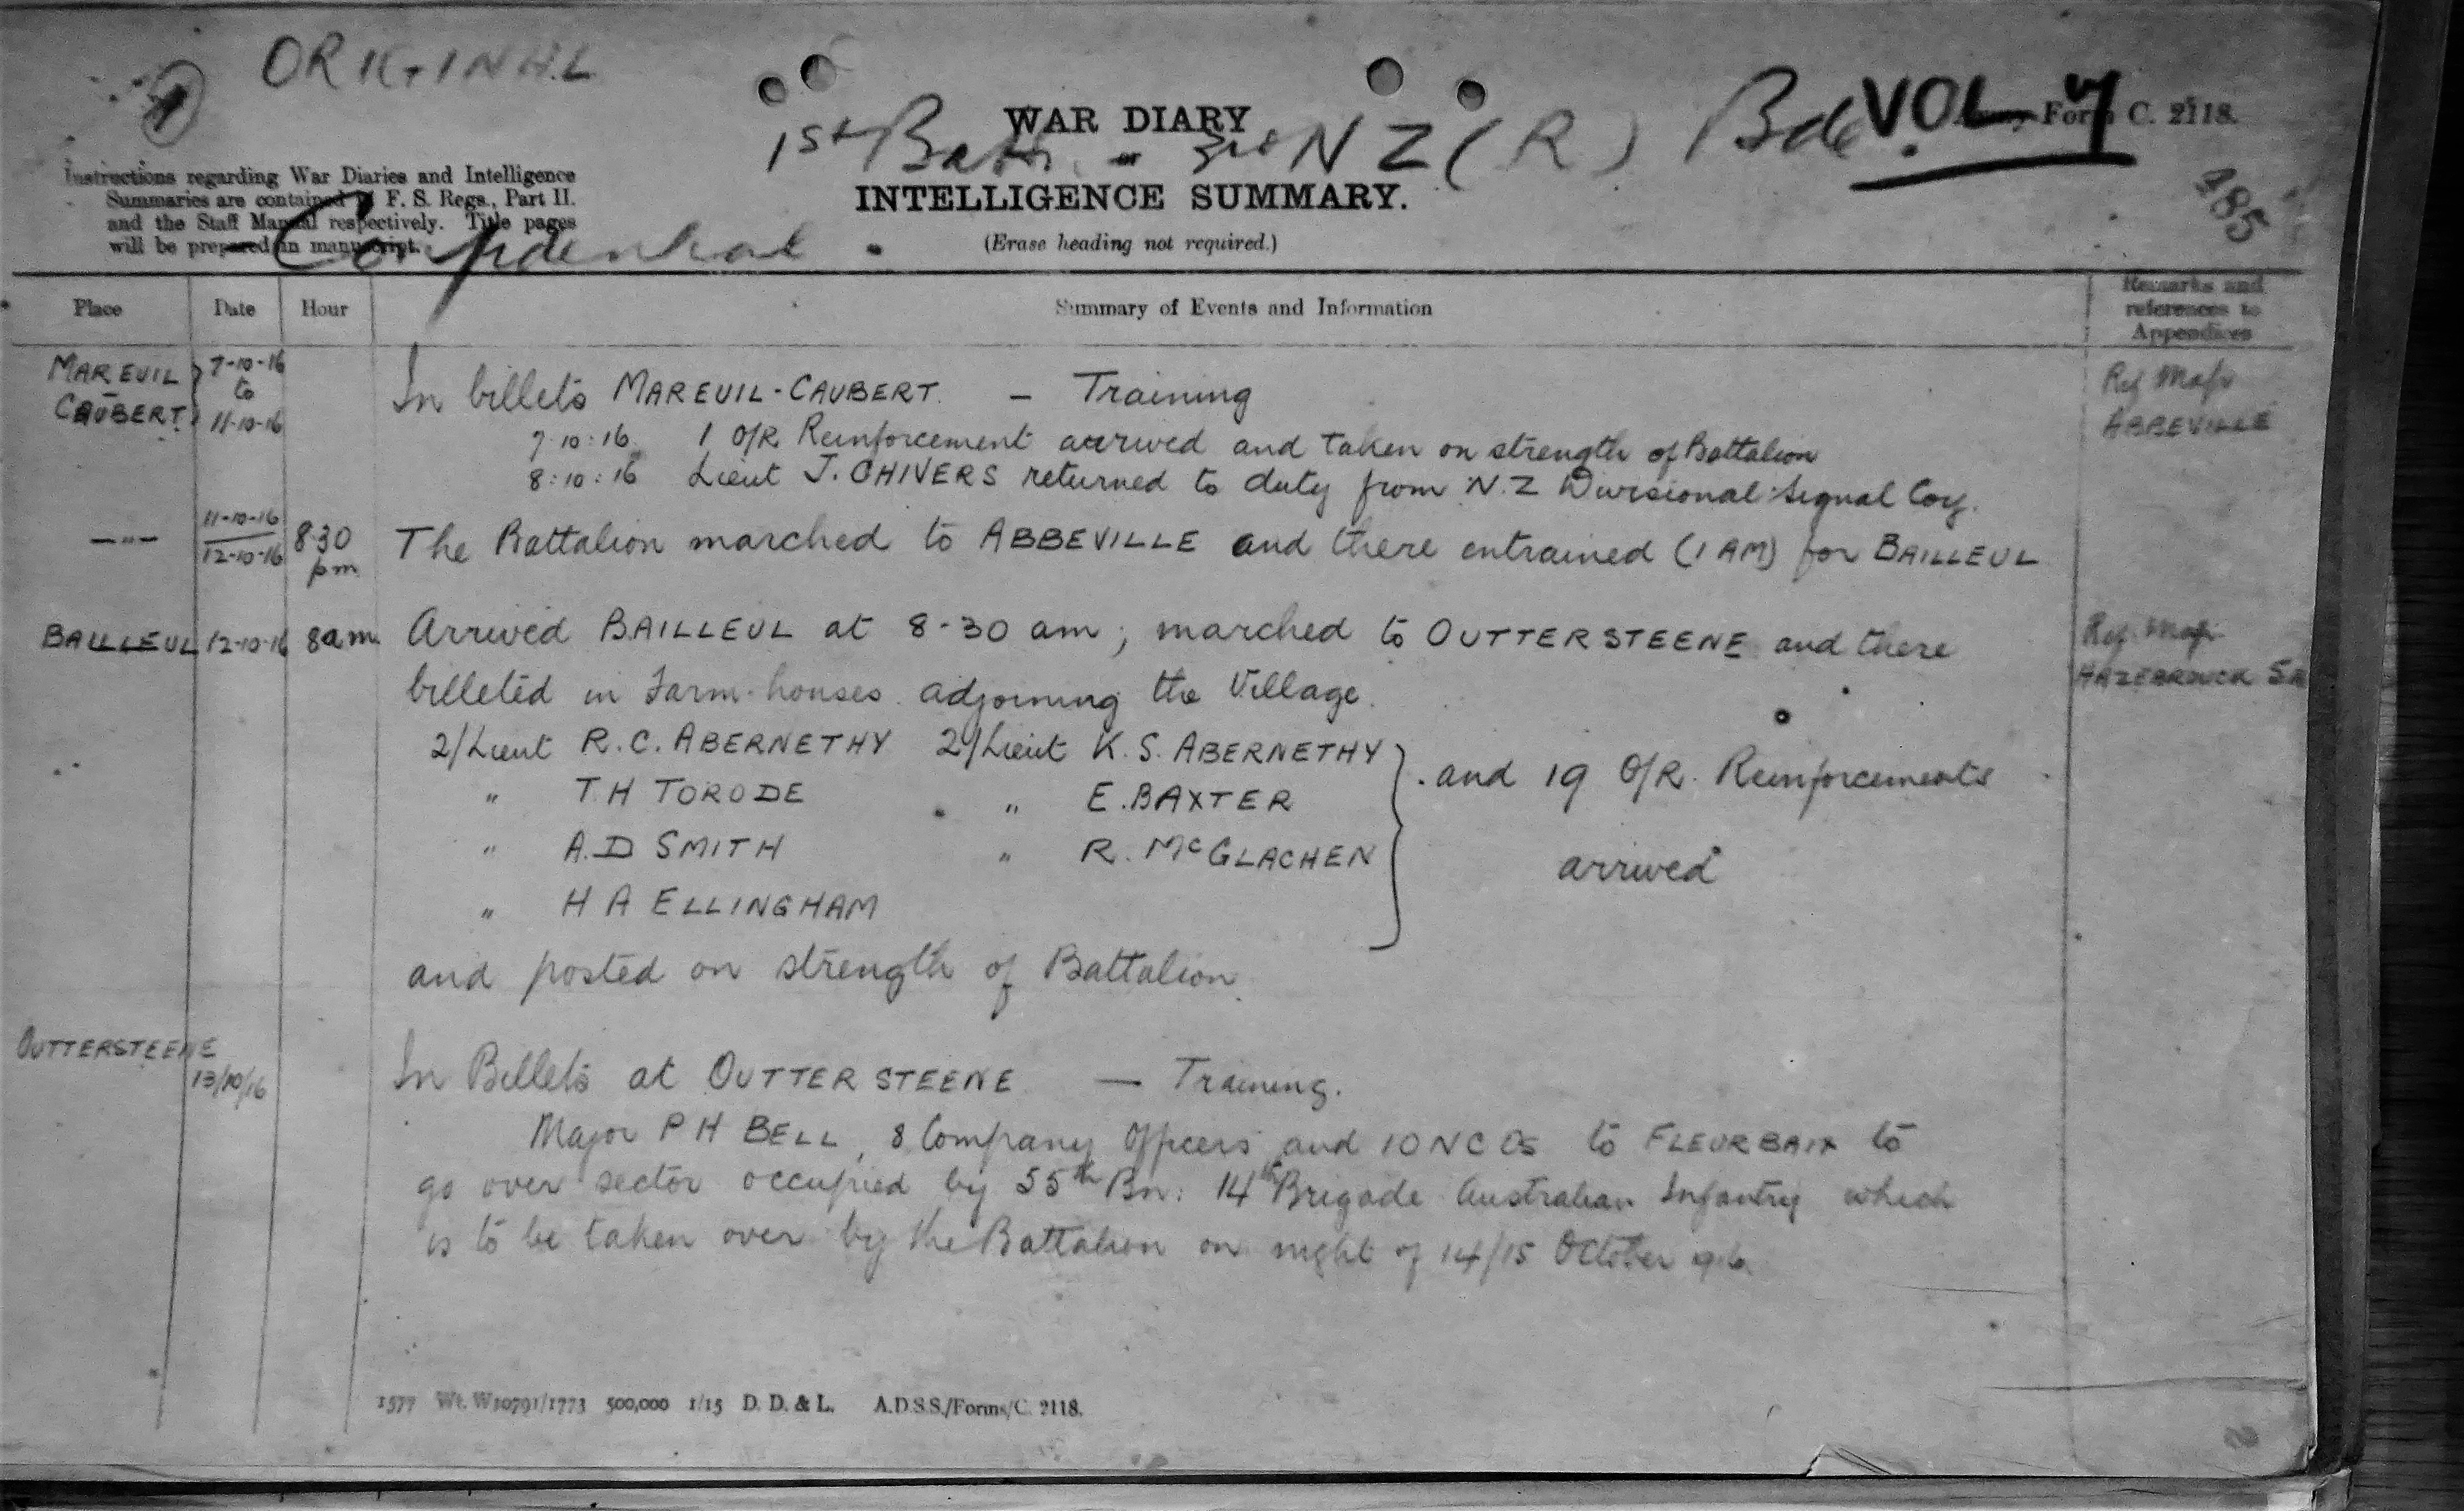 ORIGINAL
1
WAR DIARY
or
INTELLIGENCE SUMMARY.
(Erase heading not required.)
1st Battn. 3rd N Z (R) Bde.
VOL
Army Form C. 2118.
485
Instructions regarding War Diaries and Intelligence
Summaries are contained in F. S. Regs., Part II.
and the Staff Manual respectively. Title pages
will be prepared in manuscript.
Confidential.
Place Date Hour Summary of Events and Information Remarks and
references to
Appendices
MAREUIL - CAUBERT 7-10-16 to 11-10-16 In billets MAREUIL-CAUBERT. — Training Ref Map ABBEVILLE
7:10:16 1 O/R Reinforcement arrived and taken on strength of Battalion
8:10:16 Lieut J. CHIVERS returned to duty from N.Z Divisional Signal Coy.
—"— 11-10-16 / 12-10-16 8.30 pm The Battalion marched to ABBEVILLE and there entrained (1 AM) for BAILLEUL
BAILLEUL 12-10-16 8am Arrived BAILLEUL at 8-30 am; marched to OUTTERSTEENE and there Ref. Map HAZEBROUCK 5A
billeted in Farm-houses adjoining the Village.
2/Lieut R.C. ABERNETHY 2/Lieut K.S. ABERNETHY
" T.H TORODE " E. BAXTER and 19 O/R. Reinforcements
" A.D SMITH " R. McGLACHEN arrived
" H A ELLINGHAM
and posted on strength of Battalion.
OUTTERSTEENE 13/10/16 In Billets at OUTTERSTEENE — Training.
Major P H BELL, 8 Company Officers and 10 NCOs to FLEURBAIX to
go over sector occupied by 55th Bn: 14th Brigade Australian Infantry which
is to be taken over by the Battalion on night of 14/15 October
1577 Wt. W10791/1773 500,000 1/15 D. D. & L. A.D.S.S./Forms/C. 2118.
2